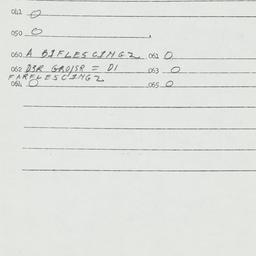 041 0
050 0
060 A BIFLESCING2 061 0
062 DIR GROJSR = DI 063 0
FARFLESCING2
064 0 065 0